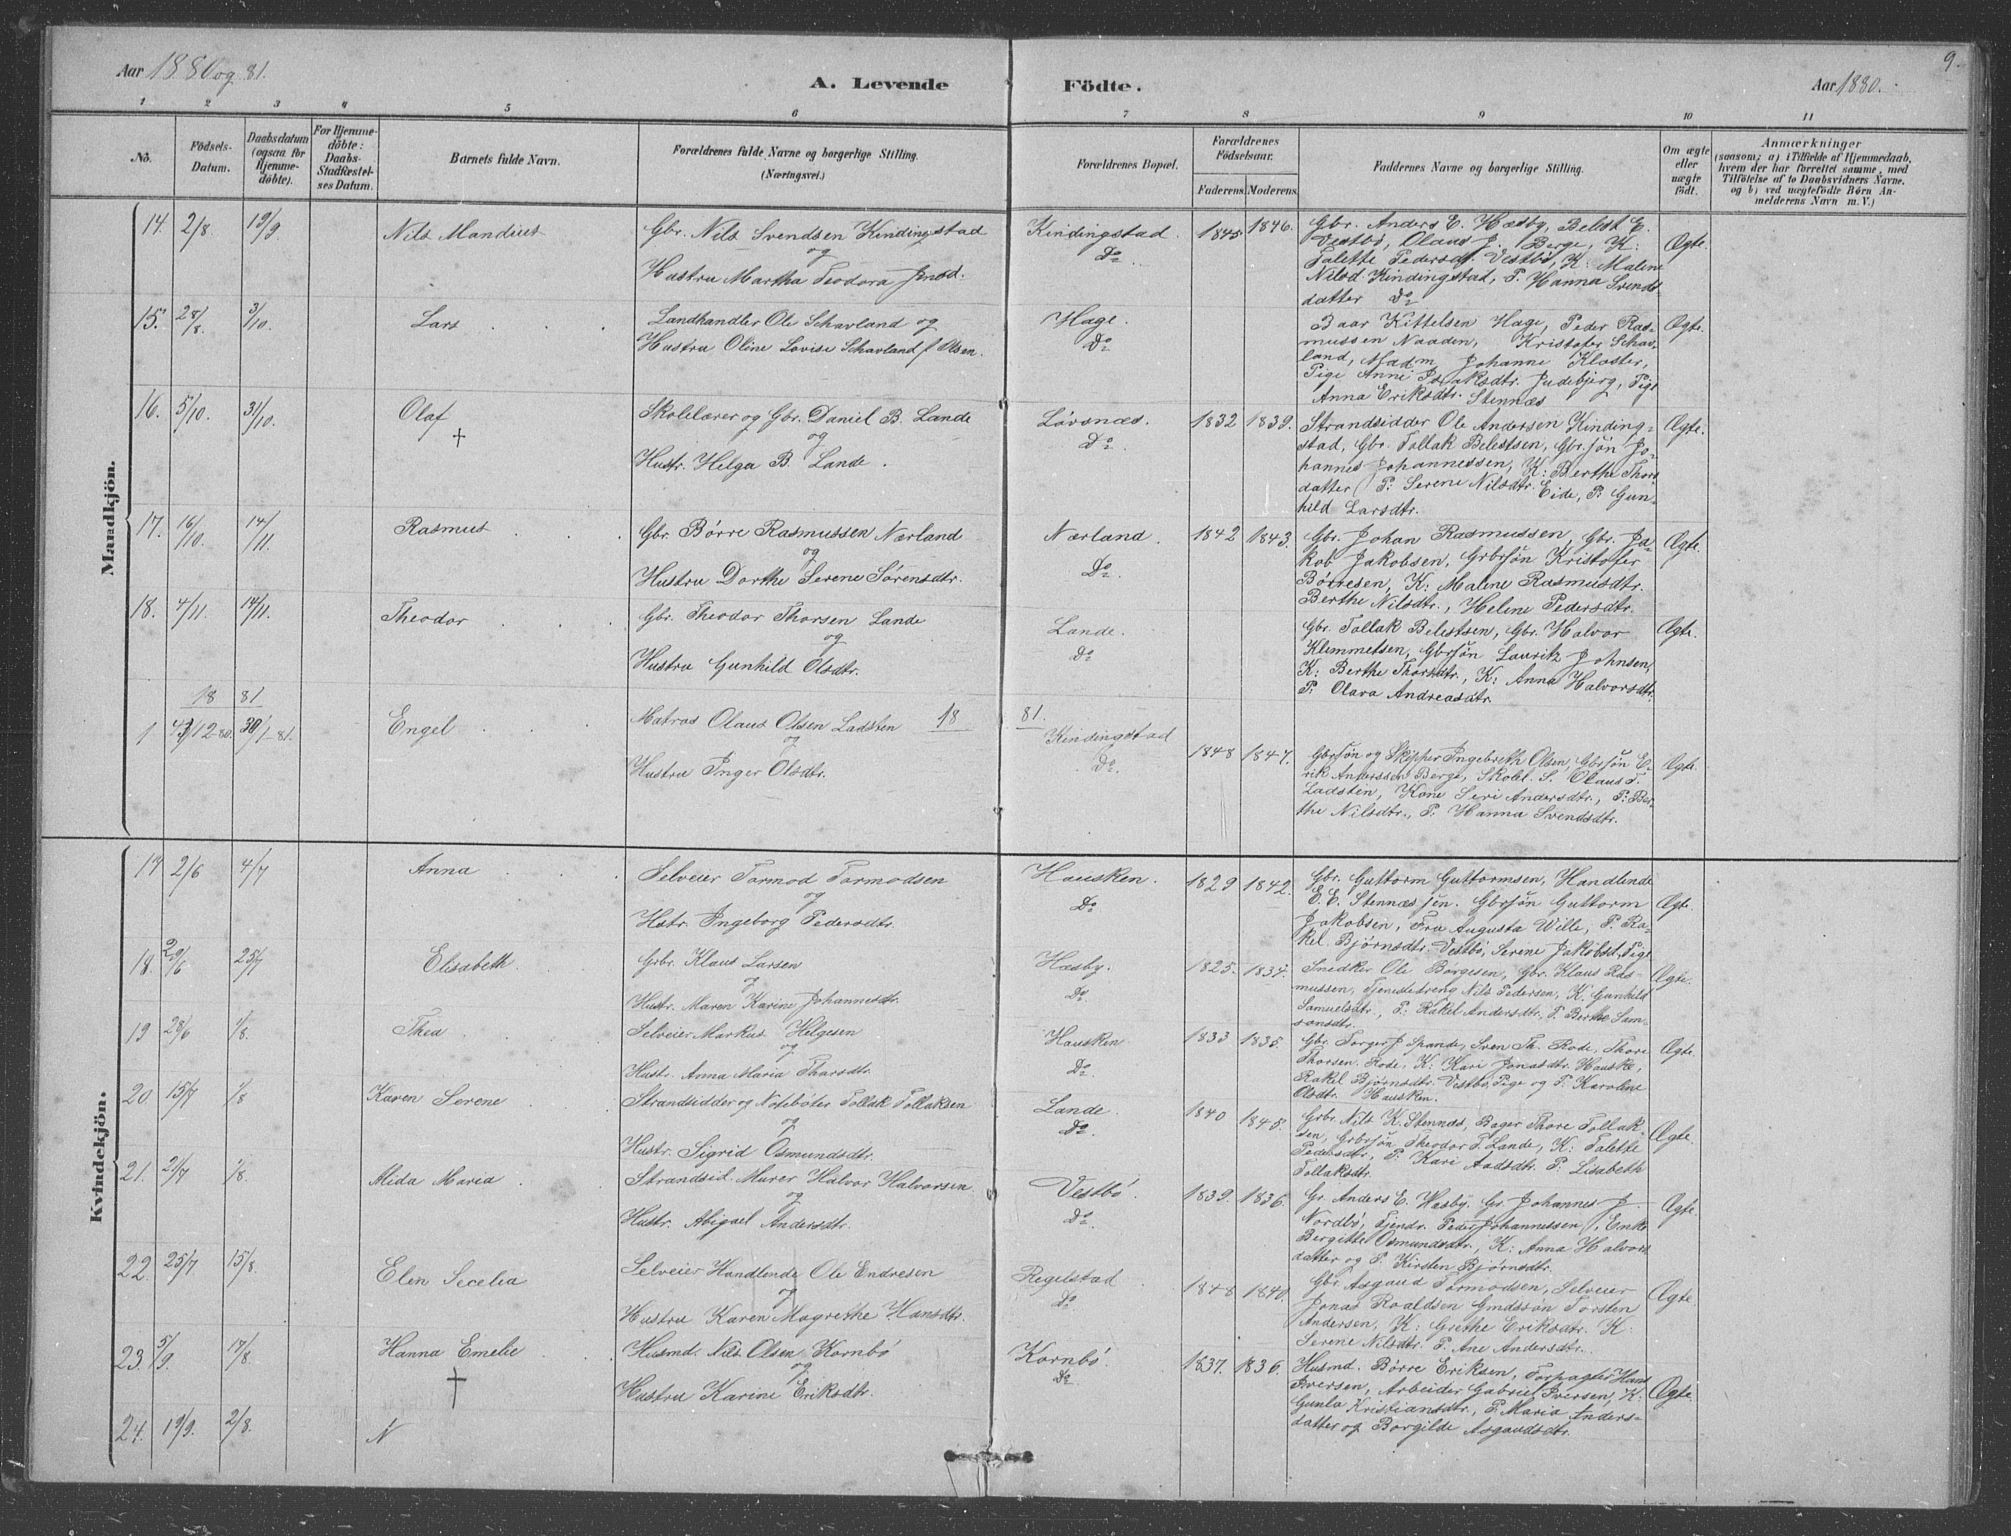 Aar 1880 og 81.
A. Levende Fødte.
Aar 1880.
9.
1 2 3 4 5 6 7 8 9 10 11
No.
Fødsels-Datum.
Daabsdatum (ogsaa for Hjemme-døbte).
For Hjemme-døbte: Daabs-Stadfæstel-ses Datum.
Barnets fulde Navn.
Forældrenes fulde Navne og borgerlige Stilling.
(Næringsvei.)
Forældrenes Bopæl.
Forældrenes Fødselsaar.
Faderens. Moderens.
Faddernes Navne og borgerlige Stilling.
Om ægte eller uægte født.
Anmærkninger
(saasom; a) i Tilfælde af Hjemmedaab,
hvem der har forrettet samme, med
Tilføielse af to Daabsvidners Navne,
og b) ved uægtefødte Børn An-
melderens Navn m. V.)
Mandkjön.
14. 2/8 19/9 Nils Mandius Gbr. Nils Svendsen Kindingstad
og
Hustru Martha Teodora Jnsd. Kindingstad. Do 1845 1846. Gbr. Anders E. Hæsby, Belest E.
Vestbö, Olaus J. Berge, K.
Talette Pedersdt. Vestbö, K: Malene
Nilsd. Kindingstad, P. Hanna Svends-
datter Do Ægte.
15. 28/8. 3/10. Lars Landhandler Ole Schavland og
Hustru Oline Lovise Schavland f. Olsen. Hage. Do Baar Kittelsen Hage, Peder Ras-
mussen Naaden, Kristofer Schav-
land, Madm Johanne Kloster,
Pige Anne Isaksdtr. Judebjerg, Pige
Anna Eriksdtr. Stennæs Ægte.
16. 5/10. 31/10. Olaf † Skolelærer og Gbr. Daniel B. Lande
og
Hustr. Helga B. Lande. Løvsnæs. Do 1832 1839. Strandsidder Ole Andersen Kinding-
stad, Gbr. Tollak Belestsen, Gbr.søn Jo-
hannes Johannessen, K: Berthe Thors
datter, P: Serene Nilsdtr. Eide, P: Gun-
hild Larsdtr. Ægte.
17. 16/10. 14/11. Rasmus Gbr. Børre Rasmussen Nærland
og
Hustru Dorthe Serene Sörensdtr. Nærland. Do 1842 1843. Gbr. Johan Rasmussen, Gbr. Ja-
kob Jakobsen, Grbrsön Kristofer
Börresen, K: Malene Rasmusdtr.
Berthe Nilsdtr., Helene Pedersdtr. Ægte.
18. 4/11. 14/11. Theodor Gbr. Theodor Thorsen Lande
og
Hustru Gunhild Olsdtr. Lande. Do Gbr. Tollak Belestsen, Gbr. Halvor
Klemmetsen, Gbrsön Lauritz Johnsen,
K: Berthe Thorsdtr., K: Anna Halvorsdtr.
P: Olava Andreasdtr. Ægte.
18 81
1 12-80. 30/1-81. Engel Matros Olaus Olsen Ladsten 18 81.
og
Hustru Inger Olsdtr. Kindingstad Do. 1848 1847. Gbrsön og Skipper Ingebreth Olsen, Gbrsön E-
rik Anderssen Berge, Skolel. S. Olaus T.
Ladsten, Kone Seri Andersdtr., P: Ber
the Nilsdtr., P. Hanna Svendsdtr. Ægte.
Kvindekjön.
17 2/6 4/7 Anna Selveier Tormod Tormodsen
og
Hstr. Ingeborg Pedersdtr. Hausken. Do 1829 1842. Gbr. Guttorm Guttormsen, Handlende
E. E. Stennæs jen. Gbrsön Guttorm
Jakobsen, Fru Augusta Wille, P. Ra-
kel Bjørnsdtr. Vestbö, Serene Jakobsd. Pige Ægte.
18. 20/6 25/7 Elisabeth Grbr. Klaus Larsen
og
Hustr. Maren Karine Johannesdtr. Hæsby. Do 1825. 1834. Snedker Ole Børgesen, Gbr. Klaus Ras-
mussen, Tjenestedreng Nils Pedersen, K. Gunhild
Samuelsdtr., P: Rakel Andersdtr. P. Berthe Sam-
sonsdtr. Ægte.
19 28/6 1/8. Thea Selveier Markus Helgesen
og
Hust. Anna Maria Tharsdtr. Hausken Do. 1833 1835. Gbr. Torger J Spande, Sven Th. Rode, Thore
Thorsen Rode, K: Kari Jonasdtr. Hauske,
Rakel Bjørnsdtr. Vestbö, Pige og P. Karoline
Olsdtr. Hausken. Ægte.
20 15/7 1/8 Karen Serene Strandsidder og Notebøter Tollak Tollaksen
og
Hustr. Sigrid Osmundsdtr. Lande. Do. 1840 1845. Grbr. Nils K. Stennæs, Bager Thore Tollak-
sen, Grbrsön Theodor T. Lande, K: Talette
Pedersdtr, P. Kari Aadsdtr. P: Lisabeth
Tollaksdtr. Ægte.
21. 21/7 1/8. Alida Maria Strandsid. Murer Halvor Halvorsen
og
Hustr. Abigael Andersdtr. Vestbö. Do. 1839. 1836. Gr. Anders E. Hæsby, Gr. Johannes J.
Nordbö, Tjendr. Peder Johannessen, Enke
Bergitte Osmundsdtr., K: Anna Halvors
datter og P. Kirsten Bjørnsdtr. Ægte.
22. 25/7 15/8. Elen Secelia Selveier Handlende Ole Endresen
og
Hustru Karen Magrethe Hansdtr. Regelstad Do. 1848 1840. Gbr. Asgaud Tormodsen, Selveier
Jonas Roaldsen Gmdssøn Torsten
Andersen, K: Grethe Eriksdtr. K.
Serene Nilsdtr. P. Ane Andersdtr. Ægte.
23. 5/9. 17/8. Hanna Emelie † Husmd. Nils Olsen Kornbö
og
Hustru Karine Eriksdtr. Kornbö. Do 1837. 1836. Husmd. Børre Eriksen, Forpagter Hans
Iversen, Arbeider Gabriel Iversen, K.
Gunla Kristiansdtr., P. Maria Anders-
datter og Borgilde Asgaudsdtr. Ægte.
24. 19/9. 2/8. N